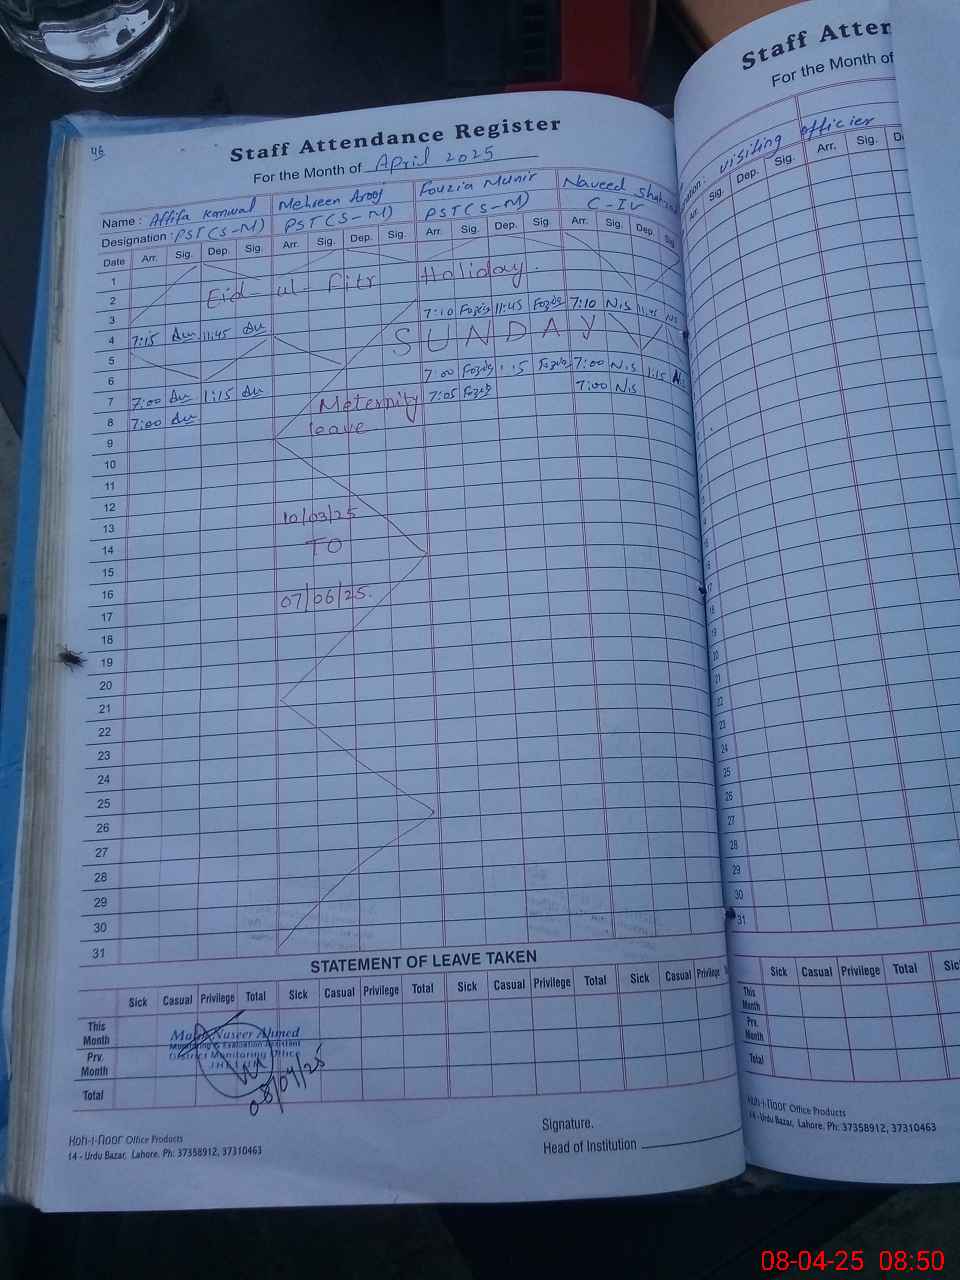 46
Staff Attendance Register
For the Month of April 2025
Name : Affifa Kanwal Mehreen Arooj Fouzia Munir Naveed
Designation : PST (S-M) PST (S-M) PST (S-M) C-IV
Date Arr. Sig. Dep. Sig. Arr. Sig. Dep. Sig. Arr. Sig. Dep. Sig. Arr. Sig. Dep. Sig.
1
2 Eid-ul-Fitr Holiday.
3
4 7:15 11:45 7:10 Fozia 11:45 Fozia 7:10 N.S 11:45 N.S
5
6 SUNDAY
7 7:00 1:15 7:00 Fozia 1:15 Fozia 7:00 N.S 1:15
8 7:00 Meternity 7:05 Fozia 7:00 N.S
9 leave
10
11
12
13 10/03/25
14 TO
15
16 07/06/25.
17
18
19
20
21
22
23
24
25
26
27
28
29
30
31
STATEMENT OF LEAVE TAKEN
Sick Casual Privilege Total Sick Casual Privilege Total Sick Casual Privilege Total Sick Casual Privilege
This Month
Prv. Month
Total
Naseer Ahmed
Monitoring & Evaluation Assistant
District Monitoring Office
08/04/25
Signature.
Head of Institution
Koh-i-Noor Office Products
14 - Urdu Bazar, Lahore. Ph: 37358912, 37310463
Staff Atten
For the Month of
visiting officier
Arr. Sig. Dep. Sig. Arr. Sig.
17
18
19
20
21
22
23
24
25
26
27
28
29
30
31
Sick Casual Privilege Total
This Month
Prv. Month
Total
Koh-i-Noor Office Products
14 - Urdu Bazar, Lahore. Ph: 37358912, 37310463
08-04-25 08:50